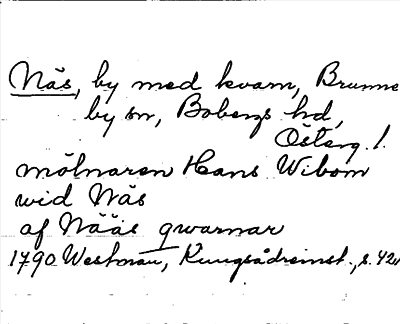 Näs, by med kvarn, Brunne
by sn, Bobergs hd,
Österg. l.
mölnaren Hans Wibom
wid Näs
af Nääs qwarnar
1790 Westerdahl, Kungsådreinst., s. 42